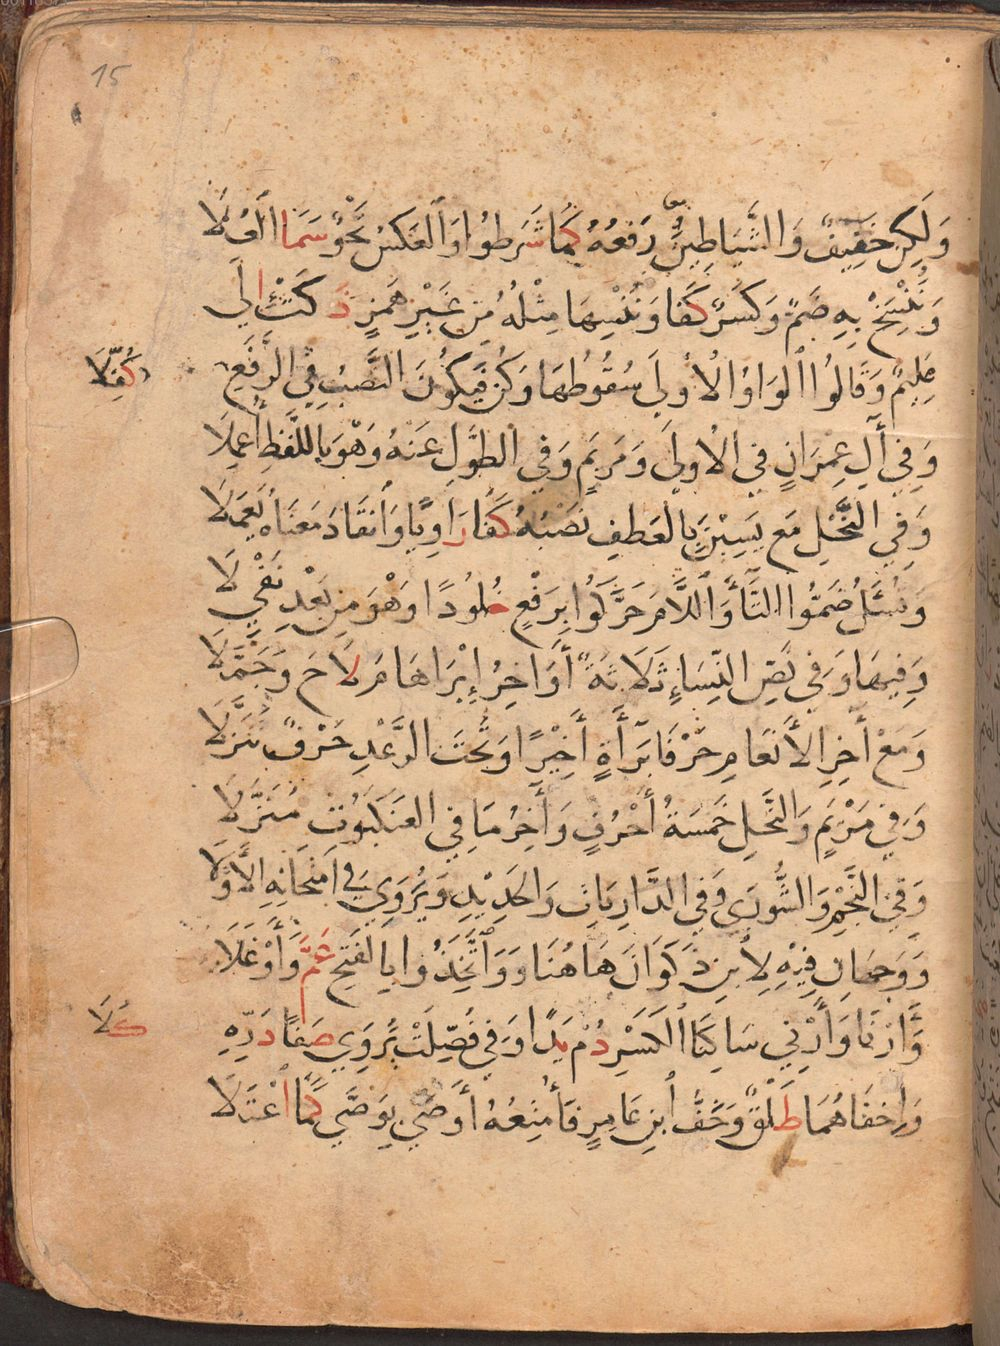 15
وَلَكِنْ خَفِيفٌ وَالشَّيَاطِينُ رَفْعُهُ كَمَا شَرَطُوا وَالْعَكْسُ نَحْوٌ سَمَا الْعُلَا
وَنُنْسِخْ بِهِ ضَمٌّ وَكَسْرٌ كَفَا وَنُنْسِهَا مِثْلُهُ مِنْ غَيْرِ هَمْزٍ ذَكَتْ إِلَى
عَلِيمٌ وَقَالُوا الْوَاوُ الْأُولَى سُقُوطُهَا وَكُنْ فَيَكُونُ النَّصْبُ فِي الرَّفْعِ
كُفِّلَا
وَفِي آلِ عِمْرَانٍ فِي الْأُولَى وَمَرْيَمٍ وَفِي الطَّوْلِ عَنْهُ وَهْوَ بِاللَّفْظِ أُعْمِلَا
وَفِي النَّحْلِ مَعْ يَسِينَ بِالْعَطْفِ نَصْبُهُ كَفَا رَاوِيًا وَانْقَادَ مَعْنَاهُ يَعْمَلَا
وَتُسْأَلُ ضَمُّوا التَّاءَ وَاللَّامَ حَرَّكُوا بِرَفْعٍ خُلُودًا وَهْوَ مِنْ بَعْدِ نَفْيِ لَا
وَفِيهَا وَفِي نَصِّ النِّسَاءِ ثَلَاثَةٌ أَوَاخِرُ إِبْرَاهَامَ لَاحَ وَجَمَّلَا
وَمَعْ آخِرِ الْأَنْعَامِ حَرْفَا بَرَاءَةٍ أَخِيرًا وَتَحْتَ الرَّعْدِ حَرْفٌ تَنَزَّلَا
وَفِي مَرْيَمٍ وَالنَّحْلِ خَمْسَةُ أَحْرُفٍ وَآخِرُ مَا فِي الْعَنْكَبُوتِ مُنَزَّلَا
وَفِي النَّجْمِ وَالشُّورَى وَفِي الذَّارِيَاتِ وَالْحَدِيدِ وَيُرْوَى فِي امْتِحَانِهِ الْأَوَّلَا
وَوَجْهَانِ فِيهِ لِابْنِ ذَكْوَانَ هَاهُنَا وَوَاتَّخَذُوا بِالْفَتْحِ عَمَّ وَأَوْغَلَا
وَأَرْنَا وَأَرْنِي سَاكِنَا الْكَسْرِ دُمْ يَدًا وَفِي فُصِّلَتْ يُرْوَى صَفَا دَرِّهِ
كُلَا
وَأَخْفَاهُمَا طَلْقٌ وَخَفُّ ابْنِ عَامِرٍ فَأُمْتِعُهُ أَوْصَى بِوَصَّى كَمَا اعْتَلَا